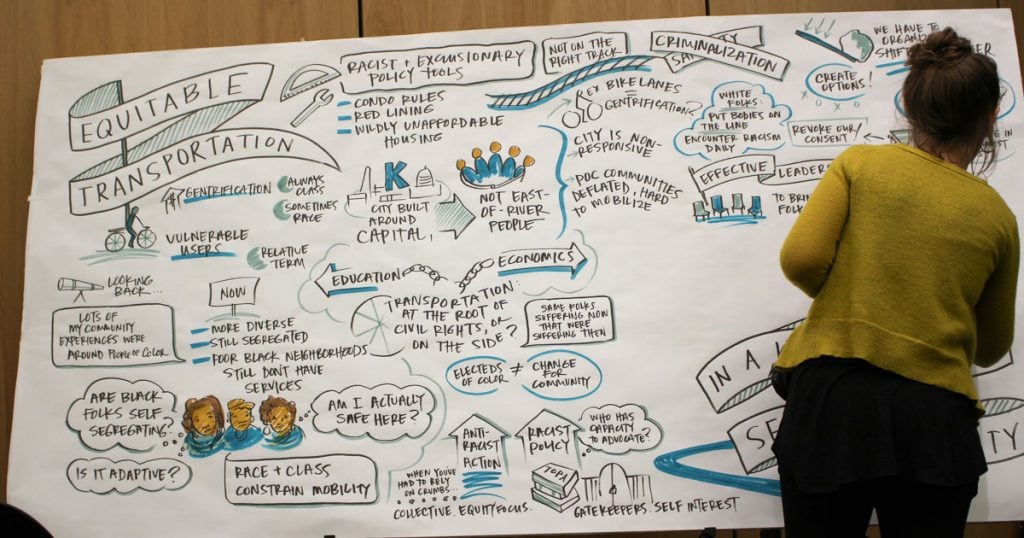 EQUITABLE
TRANSPORTATION
GENTRIFICATION
ALWAYS
CLASS
SOMETIMES
RACE
VULNERABLE
USERS
RELATIVE
TERM
RACIST + EXCLUSIONARY
POLICY TOOLS
CONDO RULES
RED LINING
WILDLY UNAFFORDABLE
HOUSING
K
CITY BUILT
AROUND
CAPITAL,
NOT EAST-
OF-RIVER
PEOPLE
NOT ON THE
RIGHT TRACK
CRIMINALIZATION
EX BIKE LANES =
GENTRIFICATION?
CITY IS NON-
RESPONSIVE
POC COMMUNITIES
DEFLATED, HARD
TO MOBILIZE
WHITE
FOLKS:
PUT BODIES ON
THE LINE
ENCOUNTER RACISM
DAILY
WE HAVE TO
CREATE
OPTIONS!
X O X O
REVOKE OUR
CONSENT
EFFECTIVE
LOOKING
BACK...
LOTS OF
MY COMMUNITY
EXPERIENCES WERE
AROUND PEOPLE OF COLOR
NOW
MORE DIVERSE
STILL SEGREGATED
POOR BLACK NEIGHBORHOODS
STILL DON'T HAVE
SERVICES
EDUCATION
ECONOMICS
TRANSPORTATION:
AT THE ROOT OF
CIVIL RIGHTS, OR
ON THE SIDE?
SAME FOLKS
SUFFERING NOW
THAT WERE
SUFFERING THEN
ELECTEDS
OF COLOR
≠
CHANGE
FOR
COMMUNITY
ARE BLACK
FOLKS SELF
SEGREGATING?
AM I ACTUALLY
SAFE HERE?
IS IT ADAPTIVE?
RACE + CLASS
CONSTRAIN MOBILITY
ANTI-
RACIST
ACTION
WHEN YOU'VE
HAD TO RELY
ON CRUMBS...
COLLECTIVE. EQUITY FOCUS.
RACIST
POLICY
WHO HAS
CAPACITY
TO ADVOCATE?
GATEKEEPERS. SELF INTEREST
IN A